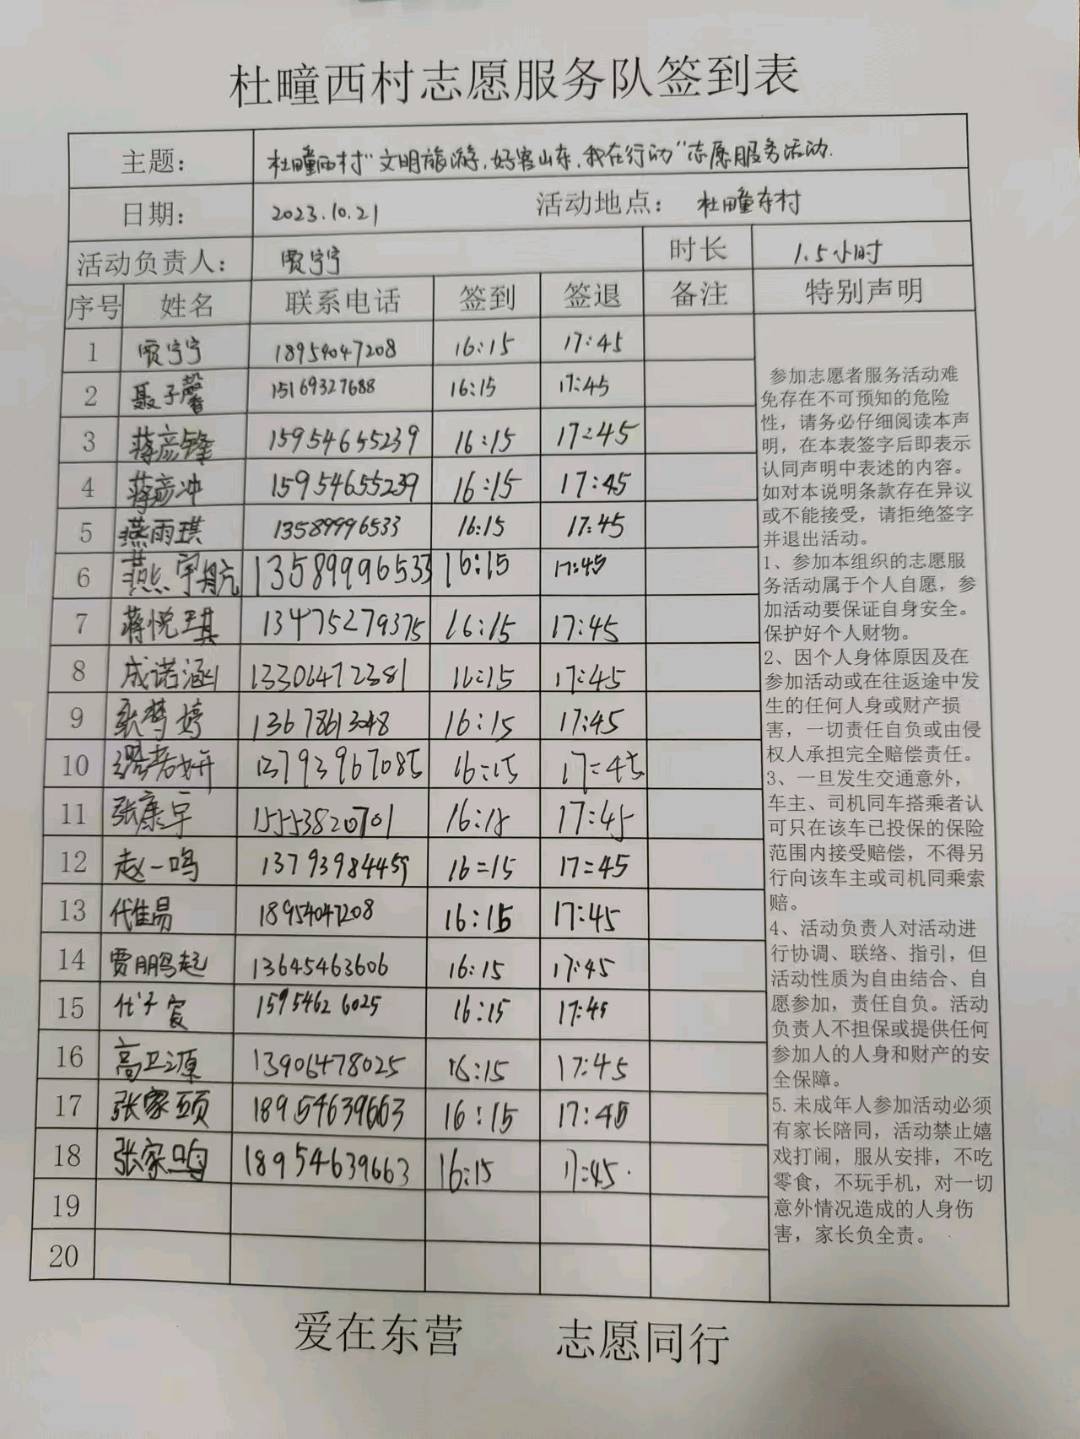 杜疃西村志愿服务队签到表
主题： 杜疃西村“文明旅游，好客山东，我在行动”志愿服务活动.
日期： 2023.10.21 活动地点： 杜疃东村
活动负责人： 贾宁宁 时长 1.5小时
序号 姓名 联系电话 签到 签退 备注 特别声明
1 贾宁宁 18954047208 16:15 17:45
2 聂子馨 15169327688 16:15 17:45
3 蒋彦锋 15954655239 16:15 17:45
4 蒋彦冲 15954655239 16:15 17:45
5 燕雨琪 13589996533 16:15 17:45
6 燕宇航 13589996533 16:15 17:45
7 蒋悦琪 13475279375 16:15 17:45
8 成诺涵 13306472381 16:15 17:45
9 张梦婷 13678613048 16:15 17:45
10 13793967085 16:15 17:45
11 张康宇 15553820701 16:15 17:45
12 赵一鸣 13793984459 16:15 17:45
13 代佳易 18954047208 16:15 17:45
14 贾鹏起 13645463606 16:15 17:45
15 代子宸 15954626025 16:15 17:45
16 高卫源 13906478025 16:15 17:45
17 张家硕 18954639663 16:15 17:45
18 张家鸣 18954639663 16:15 17:45
19
20
参加志愿者服务活动难
免存在不可预知的危险
性，请务必仔细阅读本声
明，在本表签字后即表示
认同声明中表述的内容。
如对本说明条款存在异议
或不能接受，请拒绝签字
并退出活动。
1、参加本组织的志愿服
务活动属于个人自愿，参
加活动要保证自身安全。
保护好个人财物。
2、因个人身体原因及在
参加活动或在往返途中发
生的任何人身或财产损
害，一切责任自负或由侵
权人承担完全赔偿责任。
3、一旦发生交通意外，
车主、司机同车搭乘者认
可只在该车已投保的保险
范围内接受赔偿，不得另
行向该车主或司机同乘索
赔。
4、活动负责人对活动进
行协调、联络、指引，但
活动性质为自由结合、自
愿参加，责任自负。活动
负责人不担保或提供任何
参加人的人身和财产的安
全保障。
5.未成年人参加活动必须
有家长陪同，活动禁止嬉
戏打闹，服从安排，不吃
零食，不玩手机，对一切
意外情况造成的人身伤
害，家长负全责。
爱在东营 志愿同行